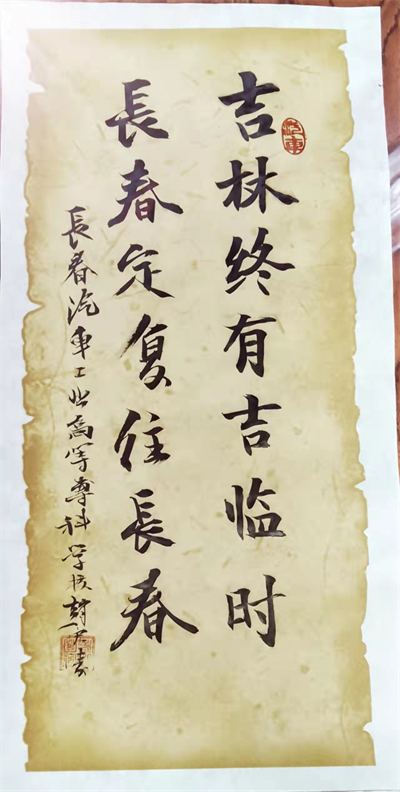 吉林终有吉临时
長春定复往長春
長春汽車工业高等專科学校